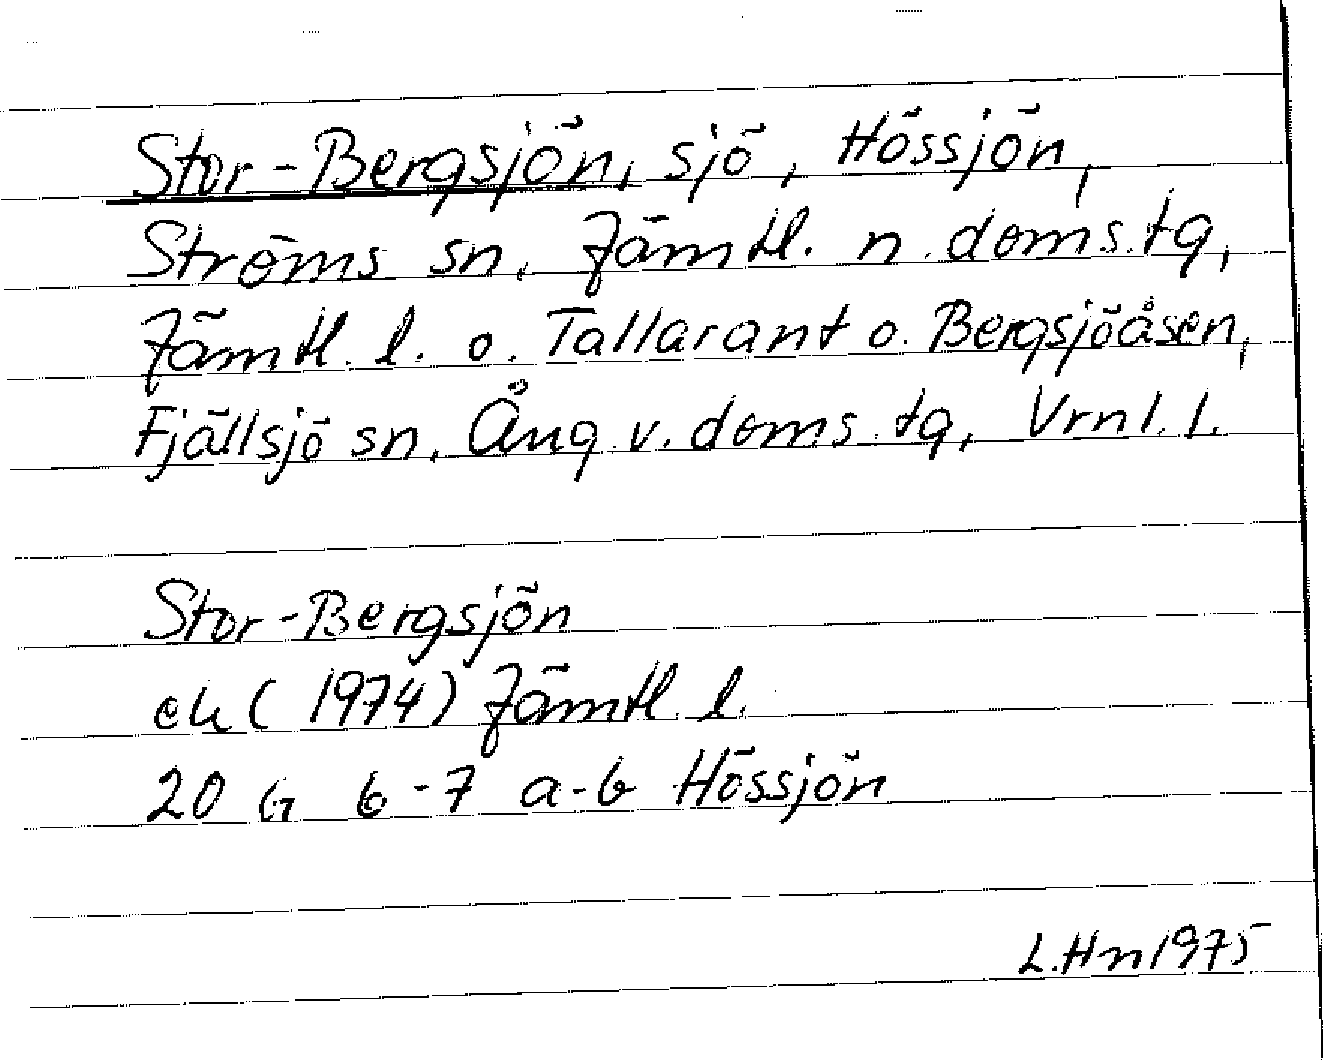 Stor-Bergsjön, sjö, Hössjön,
Ströms sn, Jämtl. n. doms.tg,
Jämtl. l. o. Tallarant o. Bergsjöåsen,
Fjällsjö sn, Ång v. doms. tg, Vrnl. l.
Stor-Bergsjön
ek (1974) Jämtl. l.
20 G 6-7 a-b Hössjön
L.Hn 1975